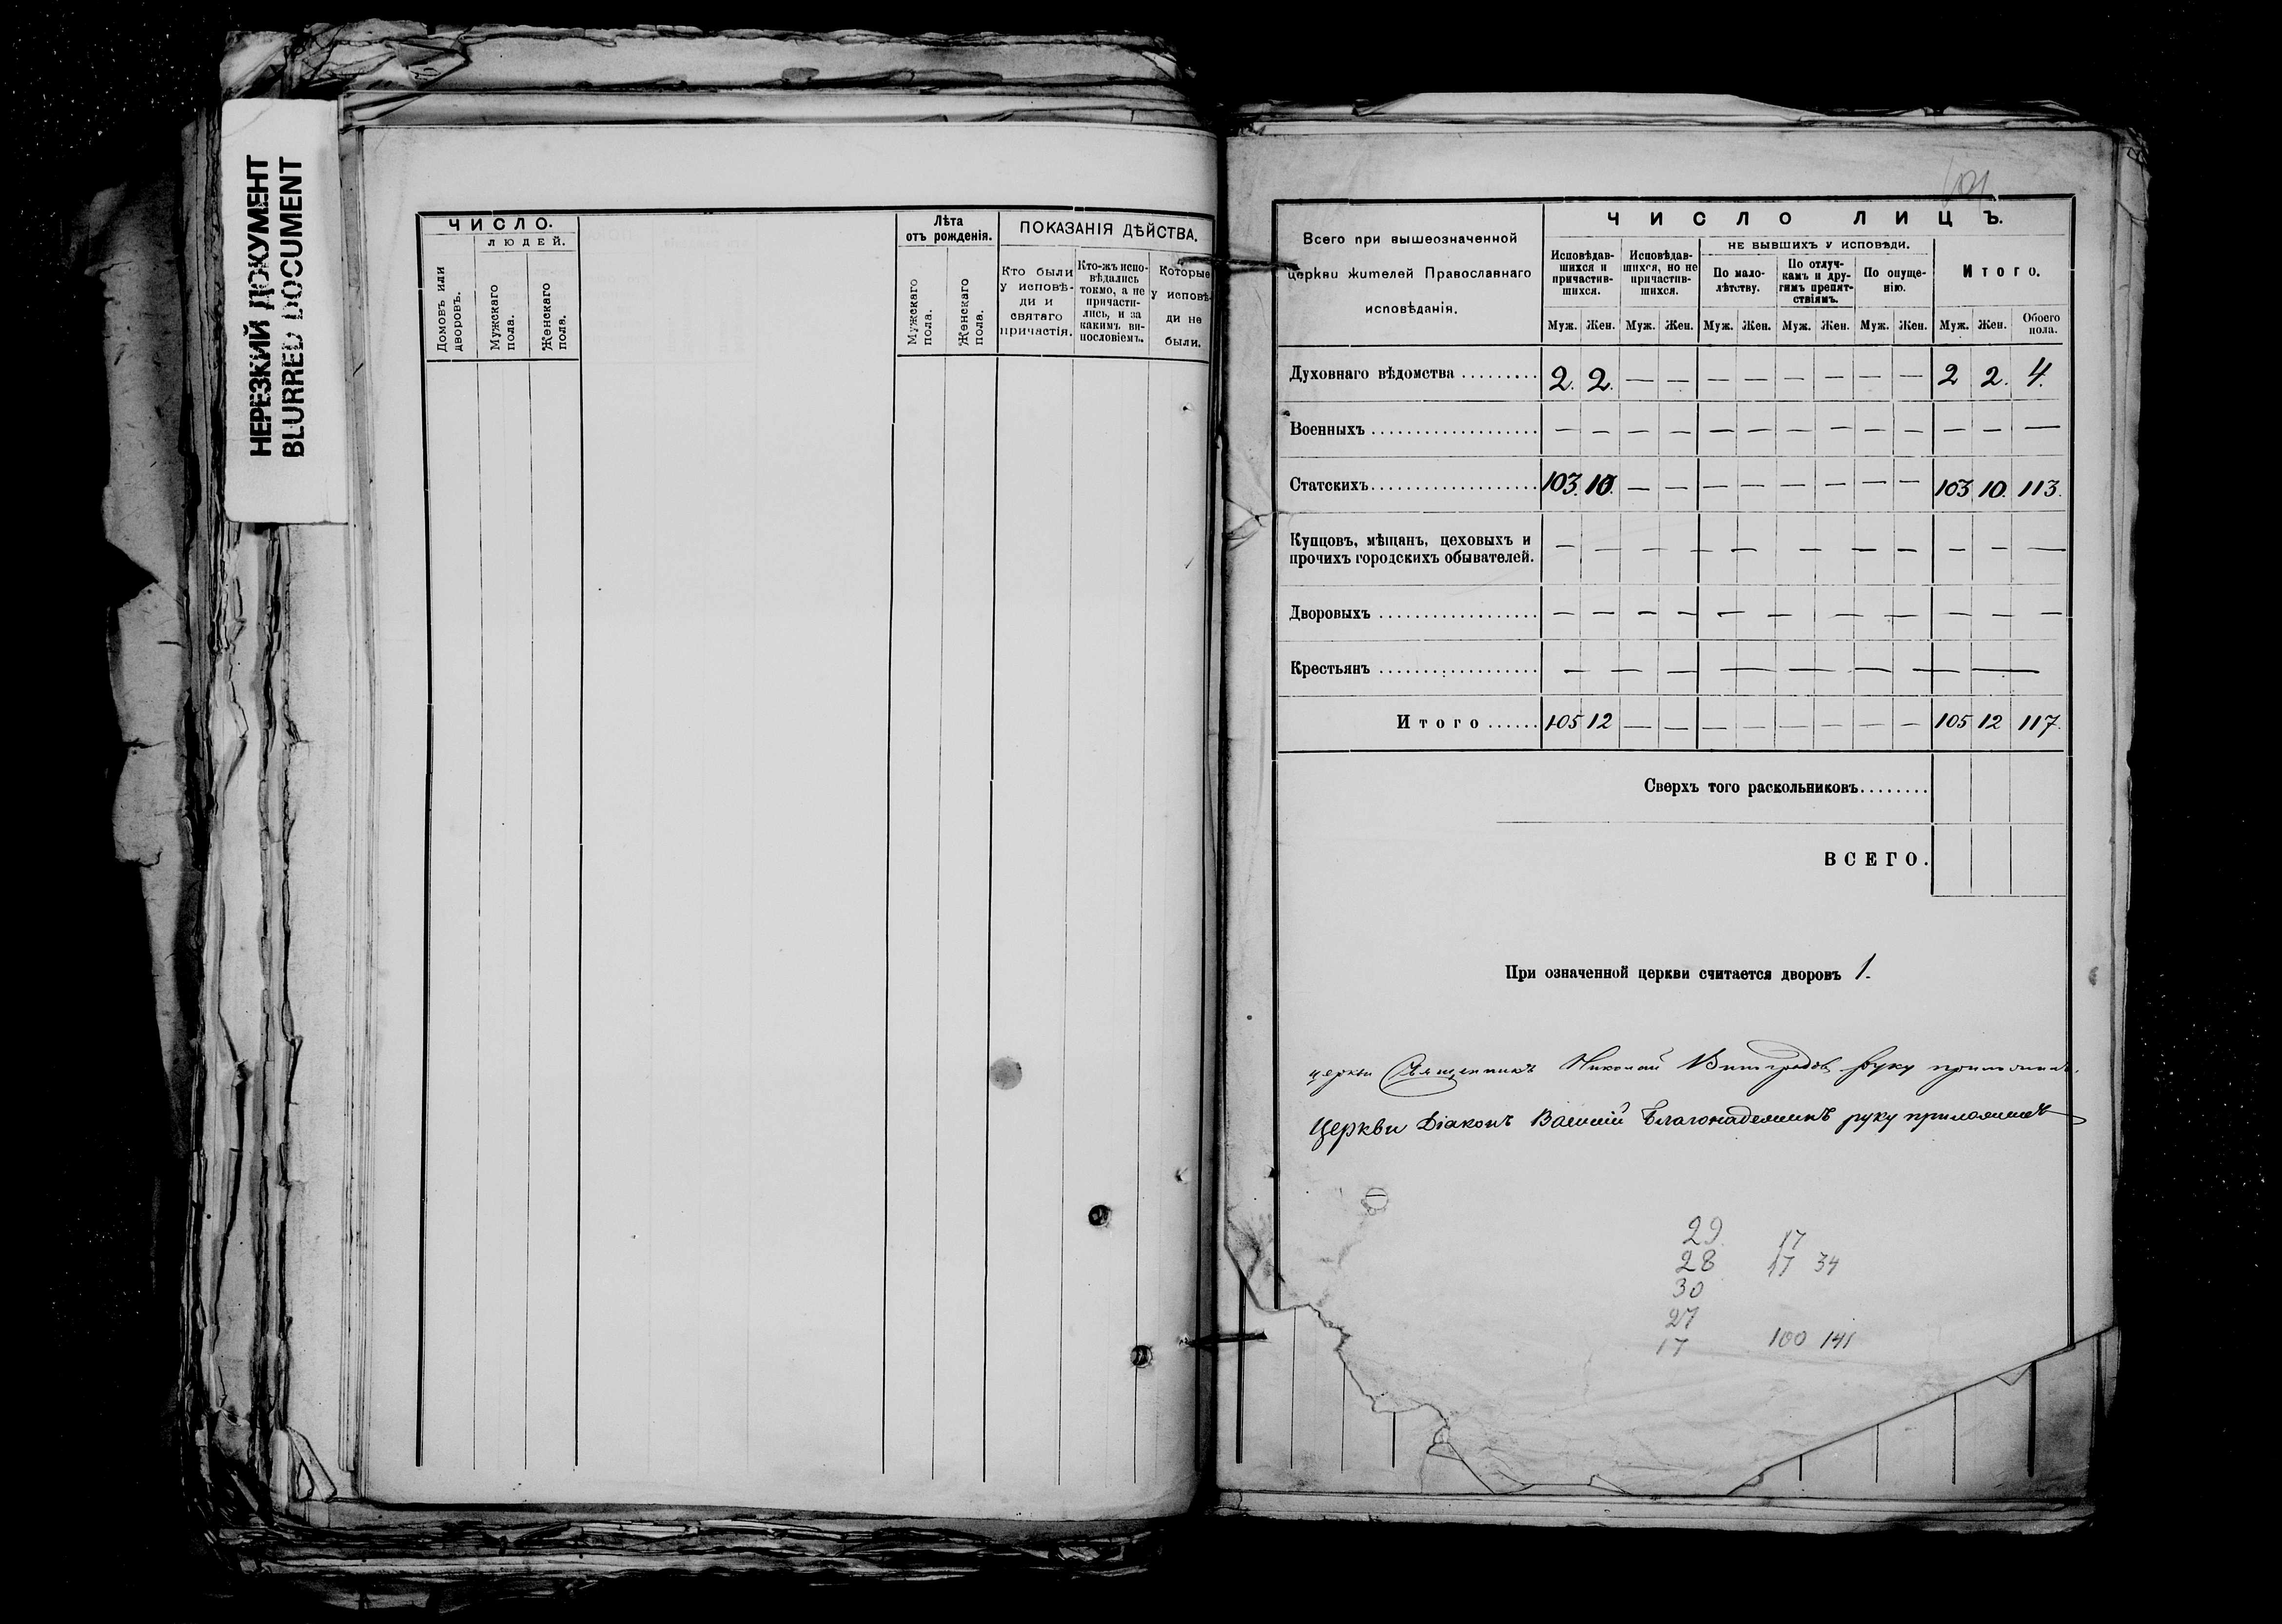 НЕРЕЗКИЙ ДОКУМЕНТ
BLURRED DOCUMENT
ЧИСЛО.
ЛЮДЕЙ.
Домовъ или дворовъ.
Мужскаго пола.
Женскаго пола.
Лѣта
отъ рожденія.
Мужскаго пола.
Женскаго пола.
ПОКАЗАНІЯ ДѢЙСТВА.
Кто были
у исповѣ-
ди и
святаго
причастія.
Кто-жъ испо-
вѣдались
токмо, а не
причасти-
лись, и за
какимъ ви-
нословіемъ.
Которые
у исповѣ-
ди не
были.
Всего при вышеозначенной
церкви жителей Православнаго
исповѣданія.
ЧИСЛО ЛИЦЪ.
Исповѣдав-
шихся и
причастив-
шихся.
Исповѣдав-
шихся, но не
причастив-
шихся.
НЕ БЫВШИХЪ У ИСПОВѢДИ.
По мало-
лѣтству.
По отлуч-
камъ и дру-
гимъ препят-
ствіямъ.
По опуще-
нію.
Итого.
Муж. Жен. Муж. Жен. Муж. Жен. Муж. Жен. Муж. Жен. Муж. Жен. Обоего пола.
Духовнаго вѣдомства ......... 2. 2. — — — — — — — — 2 2. 4.
Военныхъ ................... — — — — — — — — — — — — —
Статскихъ................... 103. 10. — — — — — — — — 103 10. 113.
Купцовъ, мѣщанъ, цеховыхъ и
прочихъ городскихъ обывателей. — — — — — — — — — — —
Дворовыхъ .................. — — — — — — — — — — — —
Крестьянъ .................. — — — — — — — — —
Итого ...... 105 12 — — — — — — — — 105 12 117.
Сверхъ того раскольниковъ........
ВСЕГО.
При означенной церкви считается дворовъ 1.
церкви Священникъ Николай Виноградовъ руку приложилъ.
Церкви Діаконъ Василій Благонадеждинъ руку приложилъ
29 17
28 17 34
30
27
17 100 141